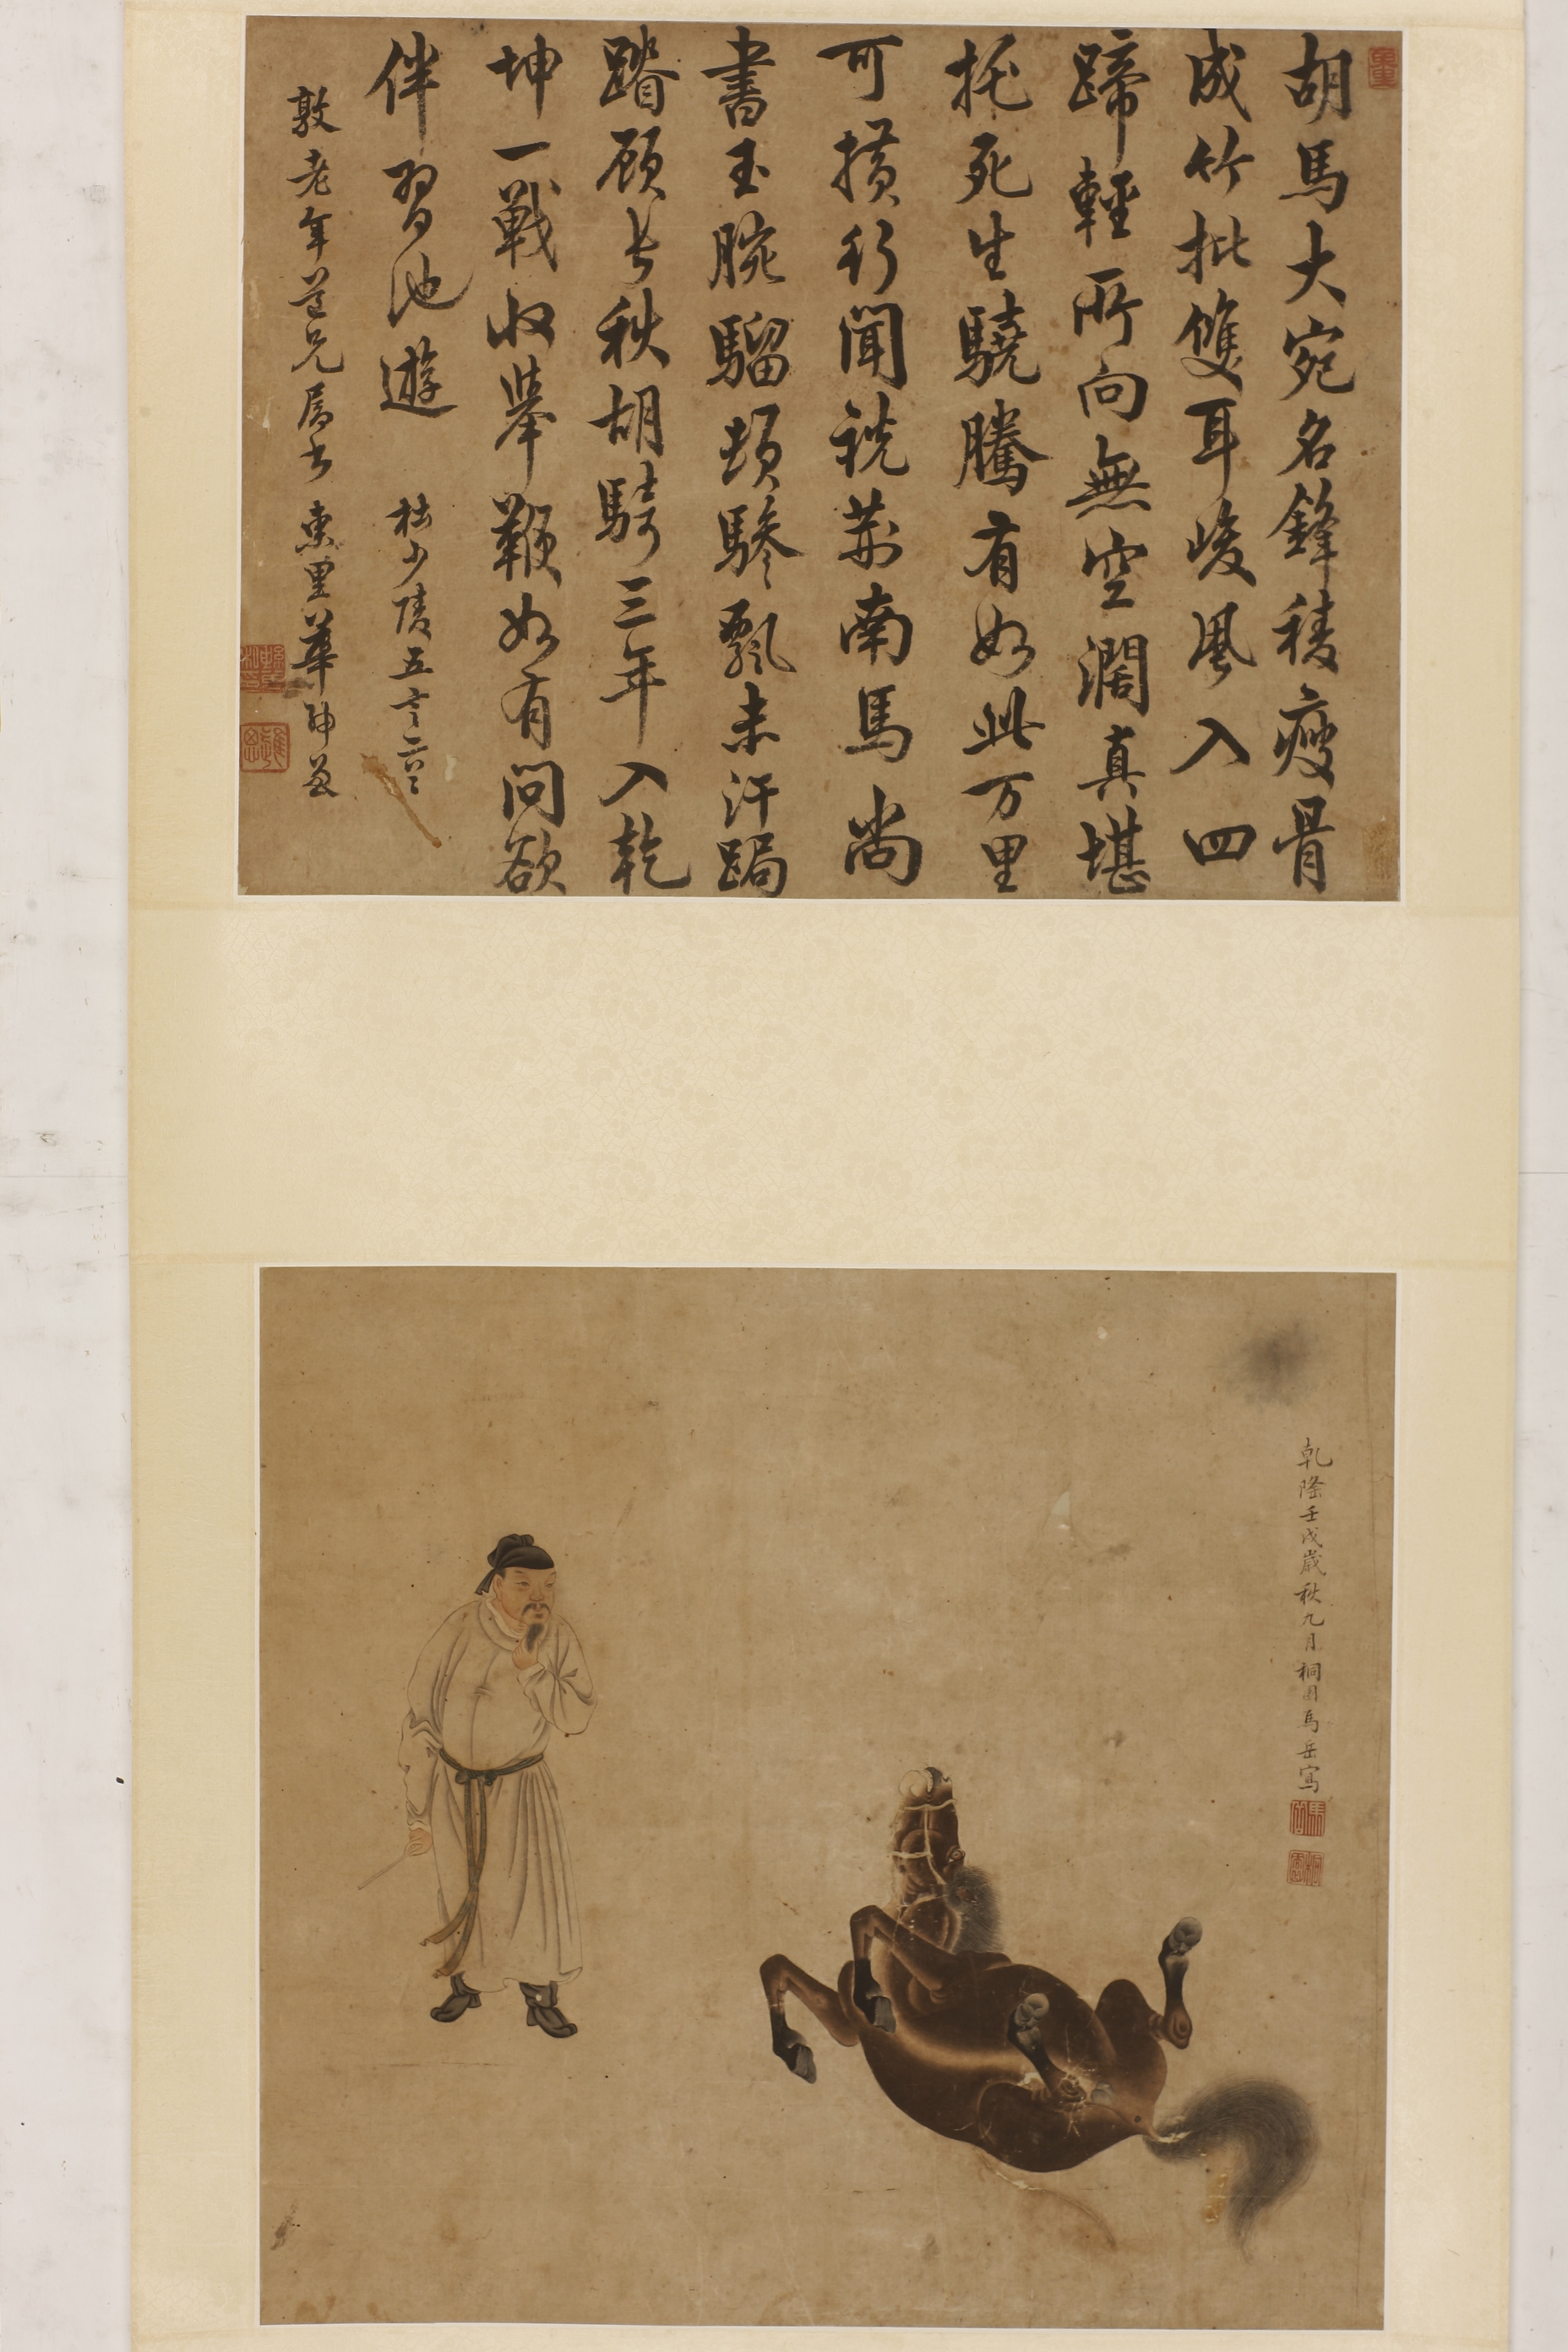 胡馬大宛名鋒稜瘦骨
成竹批雙耳峻風入四
蹄輕所向無空濶真堪
托死生驍騰有如此万里
可横行聞說荊南馬尚
書玉腕騮頓驂飄未汗跼
踏顧長秋胡騎三年入乾
坤一戰收舉鞭如有問欲
伴習池遊
杜少陵五言二首
敦老年道兄屬書 東里華
乾隆壬戌歲秋九月桐園馬岳寫